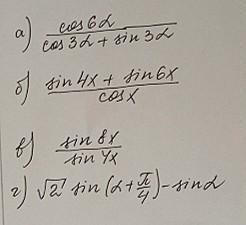 а) cos6α / (cos3α + sin3α)
б) (sin4x + sin6x) / cosx
в) sin8x / sin4x
г) √2 sin(α + π/4) - sinα